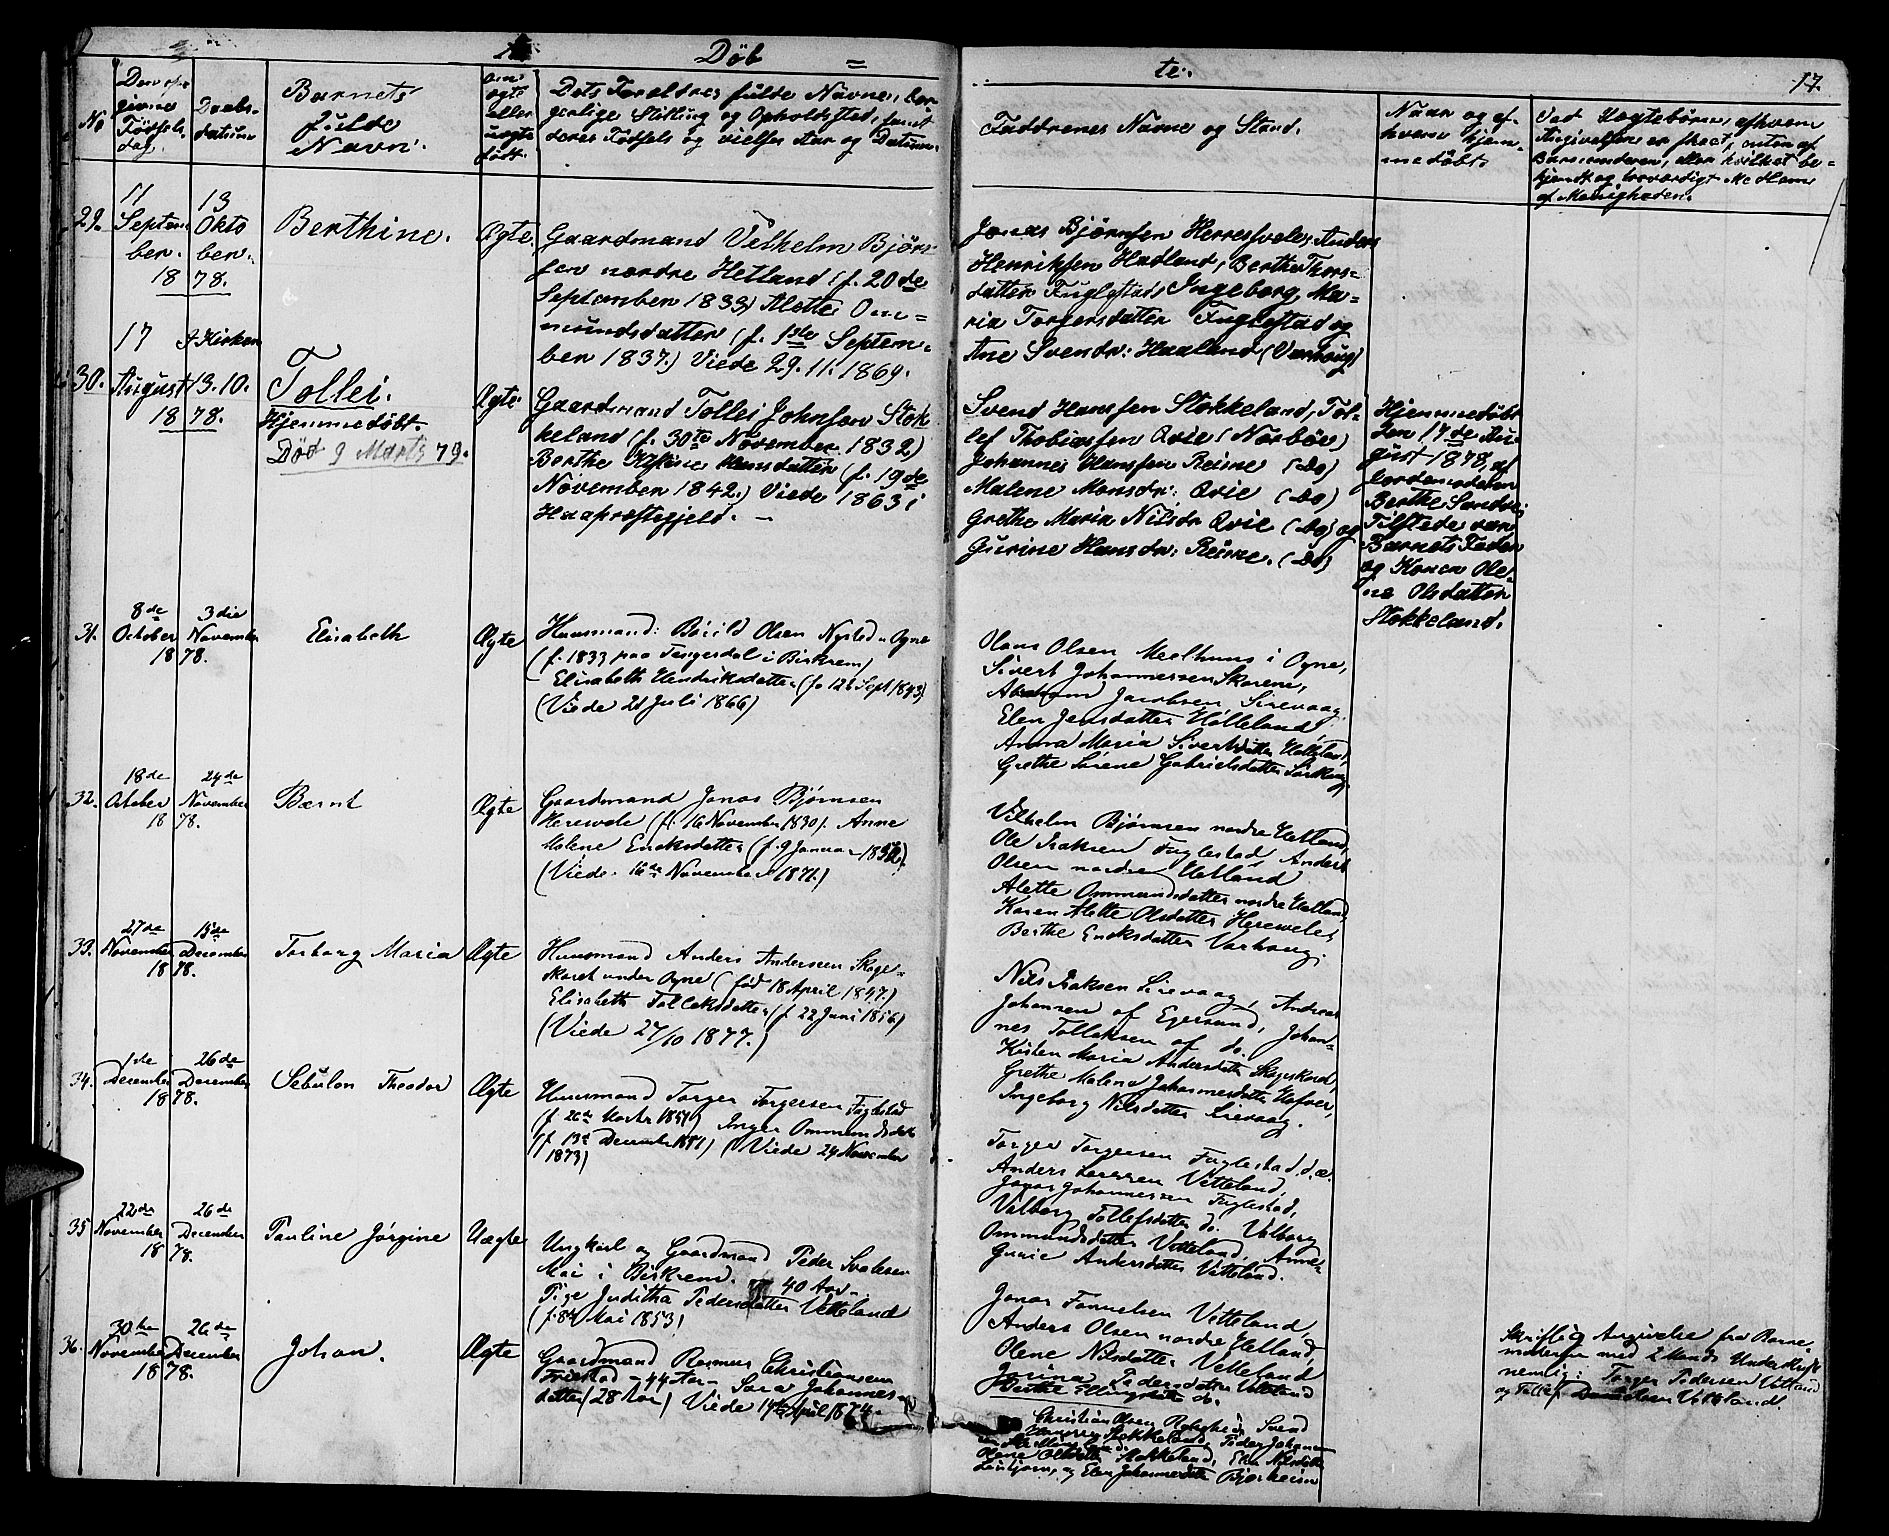 Döb = te.
17.
No
Den opgivne Fødselsdag.
Daabsdatum
Barnets fulde Navn.
om ægte eller uægte født.
Dets Forældres fulde Navne, borgerlige Stilling og Opholdssted, samt deres Fødsels og vielses Aar og Datum.
Faddrenes Navne og Stand.
Naar og af hvem hjemmedøbt
Ved Uægtebørn, afhvem Angivelsen er skeet, enten af Barnemoderen, eller hvilket bekjendt og troværdigt Medlem af Menigheden.
29.
11 September 1878.
13 Oktober
Berthine.
Ægte
Gaardmand Velhelm Bjørnsen nordre Hetland (f. 20de
September 1833) Alette Ommundsdatter (f. 1ste September 1837.) Viede 29.11.1869.
Jonas Bjørnsen Herresvele, Anders
Henriksen Hadland, Berthe Thorsdatter Fuglestad, Ingeborg Maria Torgersdatter Fuglestad og
Ane Svendr: Haaland (Varhoug)
30.
17 August 1878.
I Kirken
13.10.
Tollei.
Hjemmedøbt
Død 9 Marts 79.
Ægte.
Gaardmand Tollei Johnsen Stokkeland (f. 30te November 1832)
Berthe Kistine Hansdatter (f. 19de
November 1842.) Viede 1863 i
Haapræstegjeld. —
Svend Hansen Stokkeland, Tollef Thobiassen Qvie (Nærbøe)
Johannes Hansen Reime (Do)
Malene Monsdr: Qvie (Do)
Grethe Maria Nilsdr Qvie (Do) og
Gurine Hansdr: Reime. (Do)
Hjemmedøbt
den 17de August 1878, af
Jordemoderen
Berthe Sandvi
Tilstede vare
Barnets Fader
og Konen Oline Olsdatter
Stokkeland.
31.
8de October 1878.
3die November
Elisabeth
Ægte
Huusmand: Bårild Olsen Nysted u Ogne
(f. 1833 paa Tengesdal i Birkrem)
Elisabeth Hendriksdatter (f. 12te Sept 1843)
(Viede 21 Juli 1866)
Hans Olsen Meelhuus i Ogne,
Sivert Johannessen Skarene,
Abraham Jacobsen Sirevaag
Elen Jensdatter Hølleland,
Anna Maria Sivertsdatter Hølleland,
Grethe Sirene Gabrielsdatter
32.
18de October 1878.
24de November
Bærnt
Ægte
Gaardmand Jonas Bjørnsen
Herevele (f. 16 November 1830). Anne
Malene Eriksdatter (f. 9 Januar
(Viede 16de November 1871.)
Vilhelm Bjørnsen nordre Hetland,
Ole Isaksen Fuglestad, Anders
Olsen nordre Hetland
Alette Ommundsdatter nordre Hetland
Karen Alette Olsdatter Herevele,
Berthe Eriksdatter Varhoug.
33.
27de November 1878.
15de December
Torborg Maria
Ægte
Huusmand Anders Andersen Skogeskoret under Ogne (født 18 April 1847.)
Elisabeth Tollaksdatter (f. 22 Juni 1856)
(Viede 27/10 1877.)
Nils Isaksen Sirevaag, Andreas
Johansen af Egersund, Johannes Tollaksen af do.
Kisten Maria Andersdatter Skogeskord,
Grethe Malena Johannesdatter Hafver,
Ingeborg Nilsdatter Sirevaag.
34.
1de December 1878.
26de December
Sebulon Theodor
Ægte
Huusmand Torger Torgersen Fuglestad
(f. 26de Marts Inger Ommundsdatter
(f. 13de December (Viede 29 November
1873)
Torger Torgersen Fuglestad, d.æ.
Anders Larsen Vetteland,
Jonas Johannessen Fuglestad,
Valborg Tollefsdatter do. Valborg
Ommundsdatter Vetteland, Anne
Gurie Andersdatter Vetteland.
35
22de November 1878.
26de December
Pauline Jørgine
Uægte
Ungkarl og Gaardmand Peder Svalesen
Moi i Birkrem. 40 Aar.
Pige Juditha Pedersdatter Vetteland
(f. 8de Mai 1853)
Jonas Fonnelsen Vetteland
Anders Olsen nordre Hetland,
Olene Nilsdatter Vetteland
Josina Pedersdatter Vetteland
Berthe Ellingsdatter do.
Skriftlig Angivelse fra Barnemoderen med 2 Mands Underskrift
nemlig: Torger Pedersen Vetland
og Tollef Vetteland
36.
30te November 1878.
26de December
Johan.
Ægte
Gaardmand Rasmus Christiansen
Fuglestad — 44 Aar — Sara Johannesdatter (28 Aar) Viede 14de April 1874.
Christian Olsen Svend
Stokkeland, Peder Johansen
Olene Olsdatter Stokkeland, Elen Nilsdatter
og Elen Johannesdatter Bjerkreim